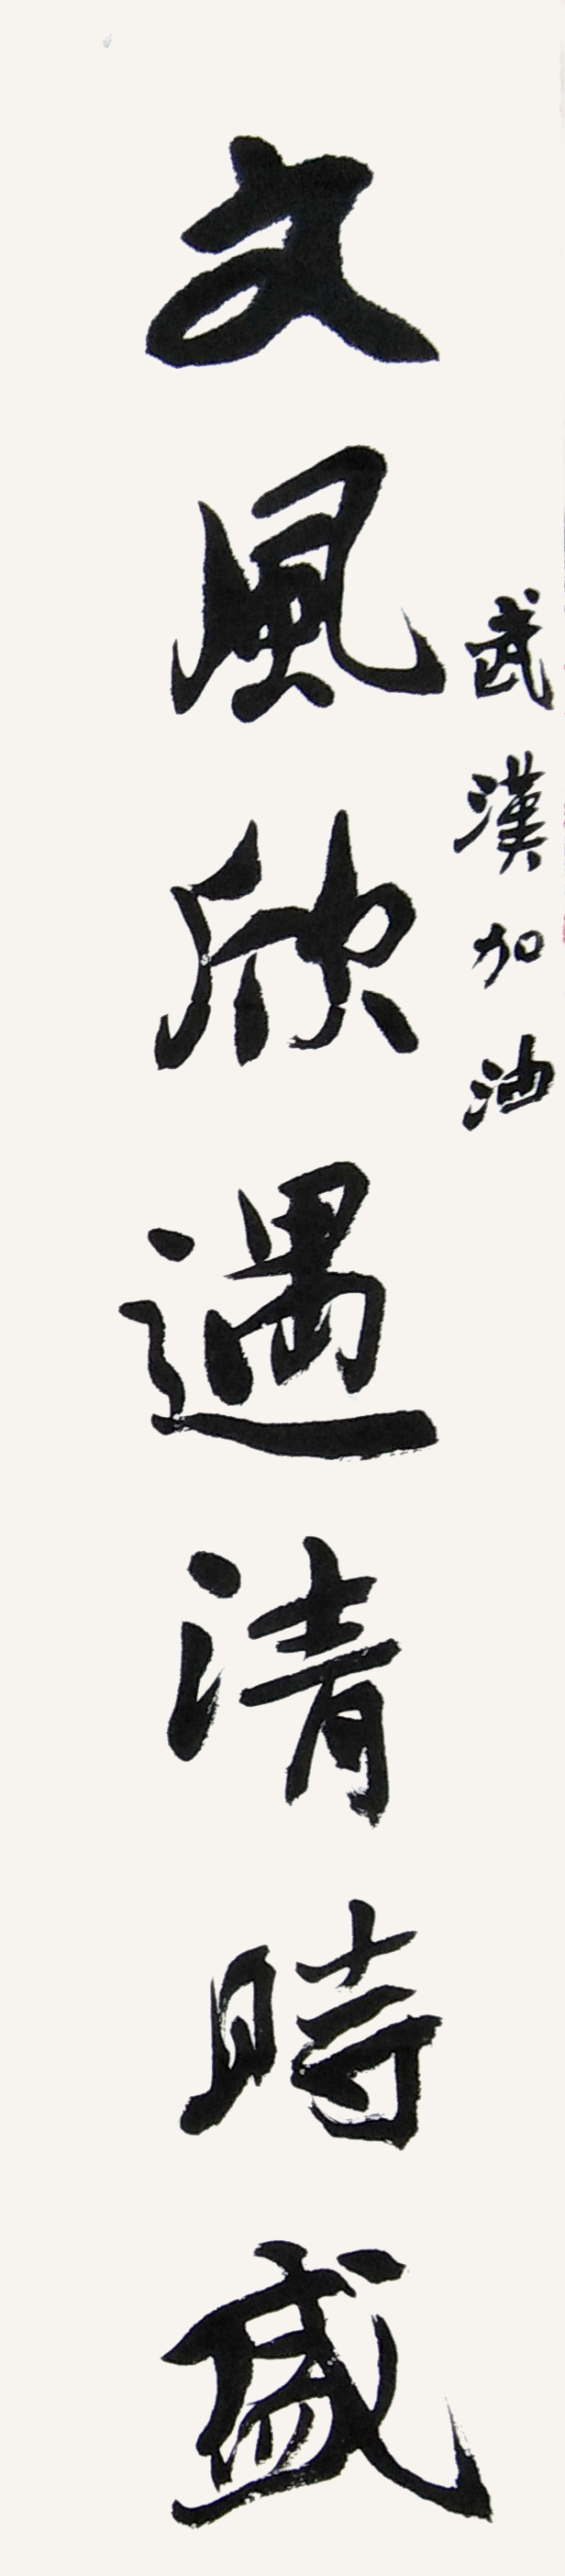 武漢加油
文風欣遇清時盛